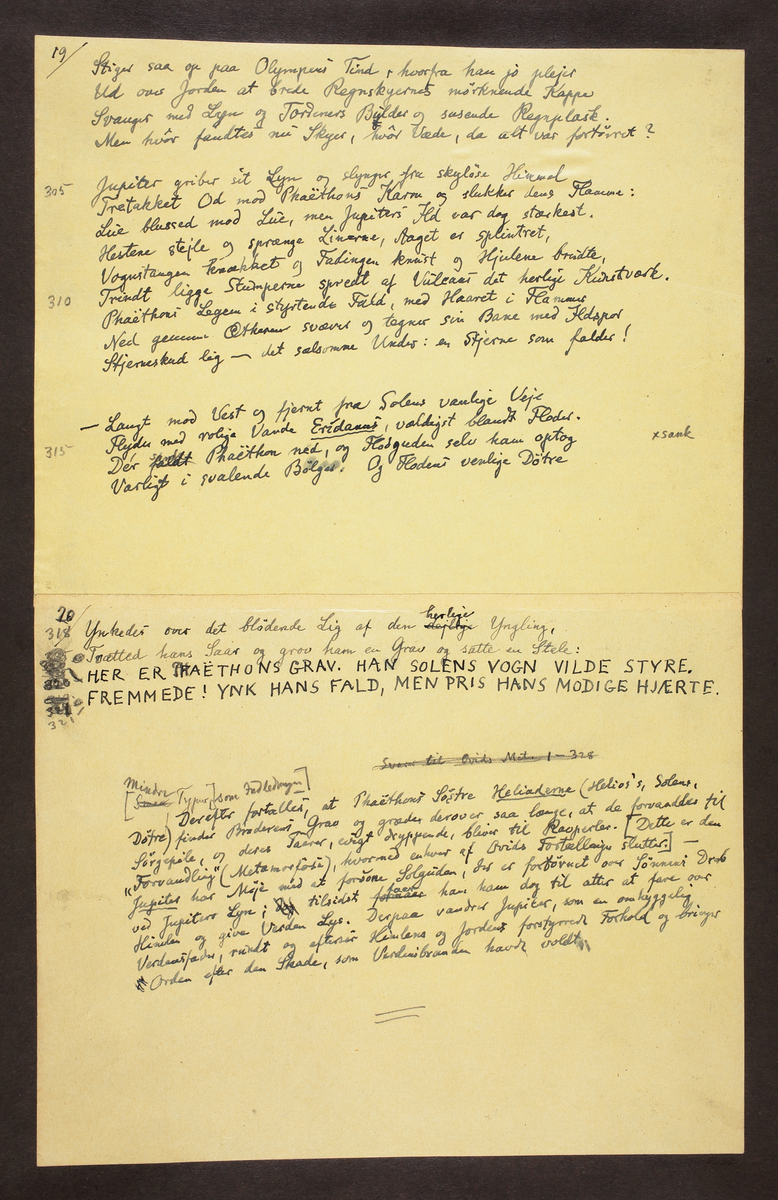 19/
Stiger saa op paa Olympens Tind, hvorfra han jo plejer
Ud over Jorden at brede Regnskyernes mörknende Kappe
Svanger med Lyn og Tordeners Bulder og susende Regnplask.
Men hvór fandtes nu Skyer, hvór Væde, da alt var fortörret?
305 Jupiter griber sit Lyn og slynger fra skylöse Himmel
Tretakket Od mod Phaëthons Karm og slukker dens Flamme:
Lue blussed mod Lue, men Jupiters Ild var dog stærkest.
Hestene stejle og sprænge Linerne, Aaget er splintret,
Vognstangen knækket og Fadingen knust og Hjulene brudte,
310 Trindt ligge Stumperne spredt af Vulcans det herlige Kunstværk.
Phaëthons Legem i styrtende Fald, med Haaret i Flammer
Ned gennem Ætheren svæver og tegner sin Bane med Ildspor
Stjerneskud lig — det sælsomme Under: en Stjerne som falder!
— Langt mod Vest og fjernt fra Solens vanlige Veje
Flyder med rolige Vande Eridanus, vældigst blandt Floder.
315 Dér faldt Phaëthon ned, og Flodguden selv ham optog
x sank
Varligt i svalende Bölger. Og Flodens venlige Dötre
20/
herlige
318 Ynkedes over det blödende Lig af den dejlige Yngling,
Tvætted hans Saar og grov ham en Grav og satte en Stele:
HER ER PHAËTHONS GRAV. HAN SOLENS VOGN VILDE STYRE.
321 FREMMEDE! YNK HANS FALD, MEN PRIS HANS MODIGE HJÆRTE.
Svarer til Ovids Met. 1–328
Mindre
[Smaa Typer] som Indledningen]
Derefter fortælles, at Phaëthons Söstre Heliaderne (Helios's, Solens,
Dötre) finder Broderens Grav og græder derover saa længe, at de forvandles til
Sörgepile, og deres Taarer, evigt dryppende, bliver til Ravperler. [Dette er den
"Forvandling" (Metamorfose), hvormed enhver af Ovids Fortællinger slutter.] —
Jupiter har Möje med at forsone Solguden, der er fortörnet over Sönnens Drab
ved Jupiters Lyn; tilsidst formaaer han ham dog til atter at fare over
Himlen og give Verden Lys. Derpaa vandrer Jupiter, som en omhyggelig
Verdensfader, rundt og efterser Himlens og Jordens forstyrrede Forhold og bringer
Orden efter den Skade, som Verdensbranden havde voldt.